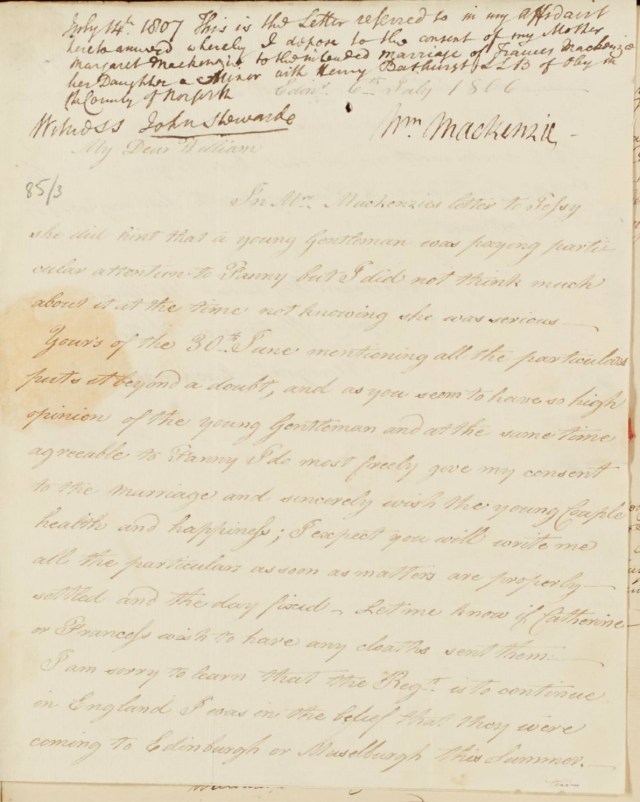 July 14th 1807 This is the Letter referred to in my affidavit
hereto annexed whereby I depose to the consent of my Mother
Margaret Mackenzie to the intended marriage of Frances Mackenzie
her Daughter a Minor with Henry Bathurst LLB of Oby in
the County of Norfolk
Edinr. 6th July 180
Witness John Steward Wm Mackenzie
My Dear William
85/3
In Mrs. Mackenzies letter to Jessy
she did hint that a young Gentleman was paying parti-
cular attention to Fanny but I did not think much
about it at the time not knowing she was serious
Yours of the 30th June mentioning all the particulars
puts it beyond a doubt, and as you seem to have so high
opinion of the young Gentleman and at the same time
agreeable to Fanny I do most freely give my consent
to the marriage and sincerely wish the young Couple
health and happiness; I expect you will write me
all the particulars as soon as matters are properly
settled and the day fixed - Let me know if Catherine
or Francess wish to have any cloaths sent them
I am sorry to learn that the Regt. is to continue
in England I was in the belief that they were
coming to Edinburgh or Muselburgh this Summer.